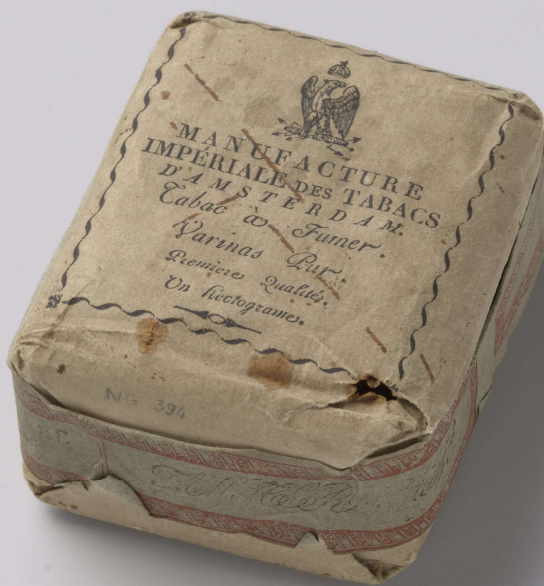 MANUFACTURE
IMPÉRIALE DES TABACS
D'AMSTERDAM.
Tabac à Fumer.
Varinas Pur.
Premiere Qualité.
Un hectograme.
NG 394